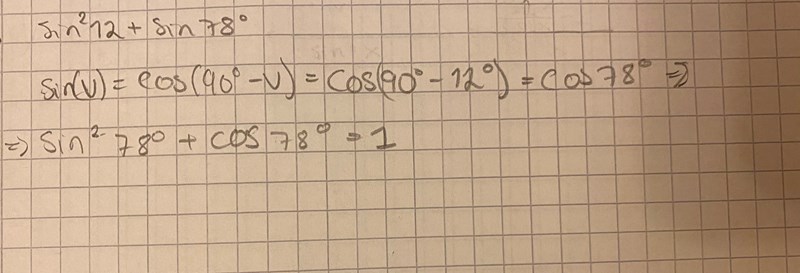 sin²12 + sin 78°
sin(v) = cos(90° - v) = cos(90° - 12°) = cos 78° ⇒
⇒ sin² 78° + cos 78° = 1